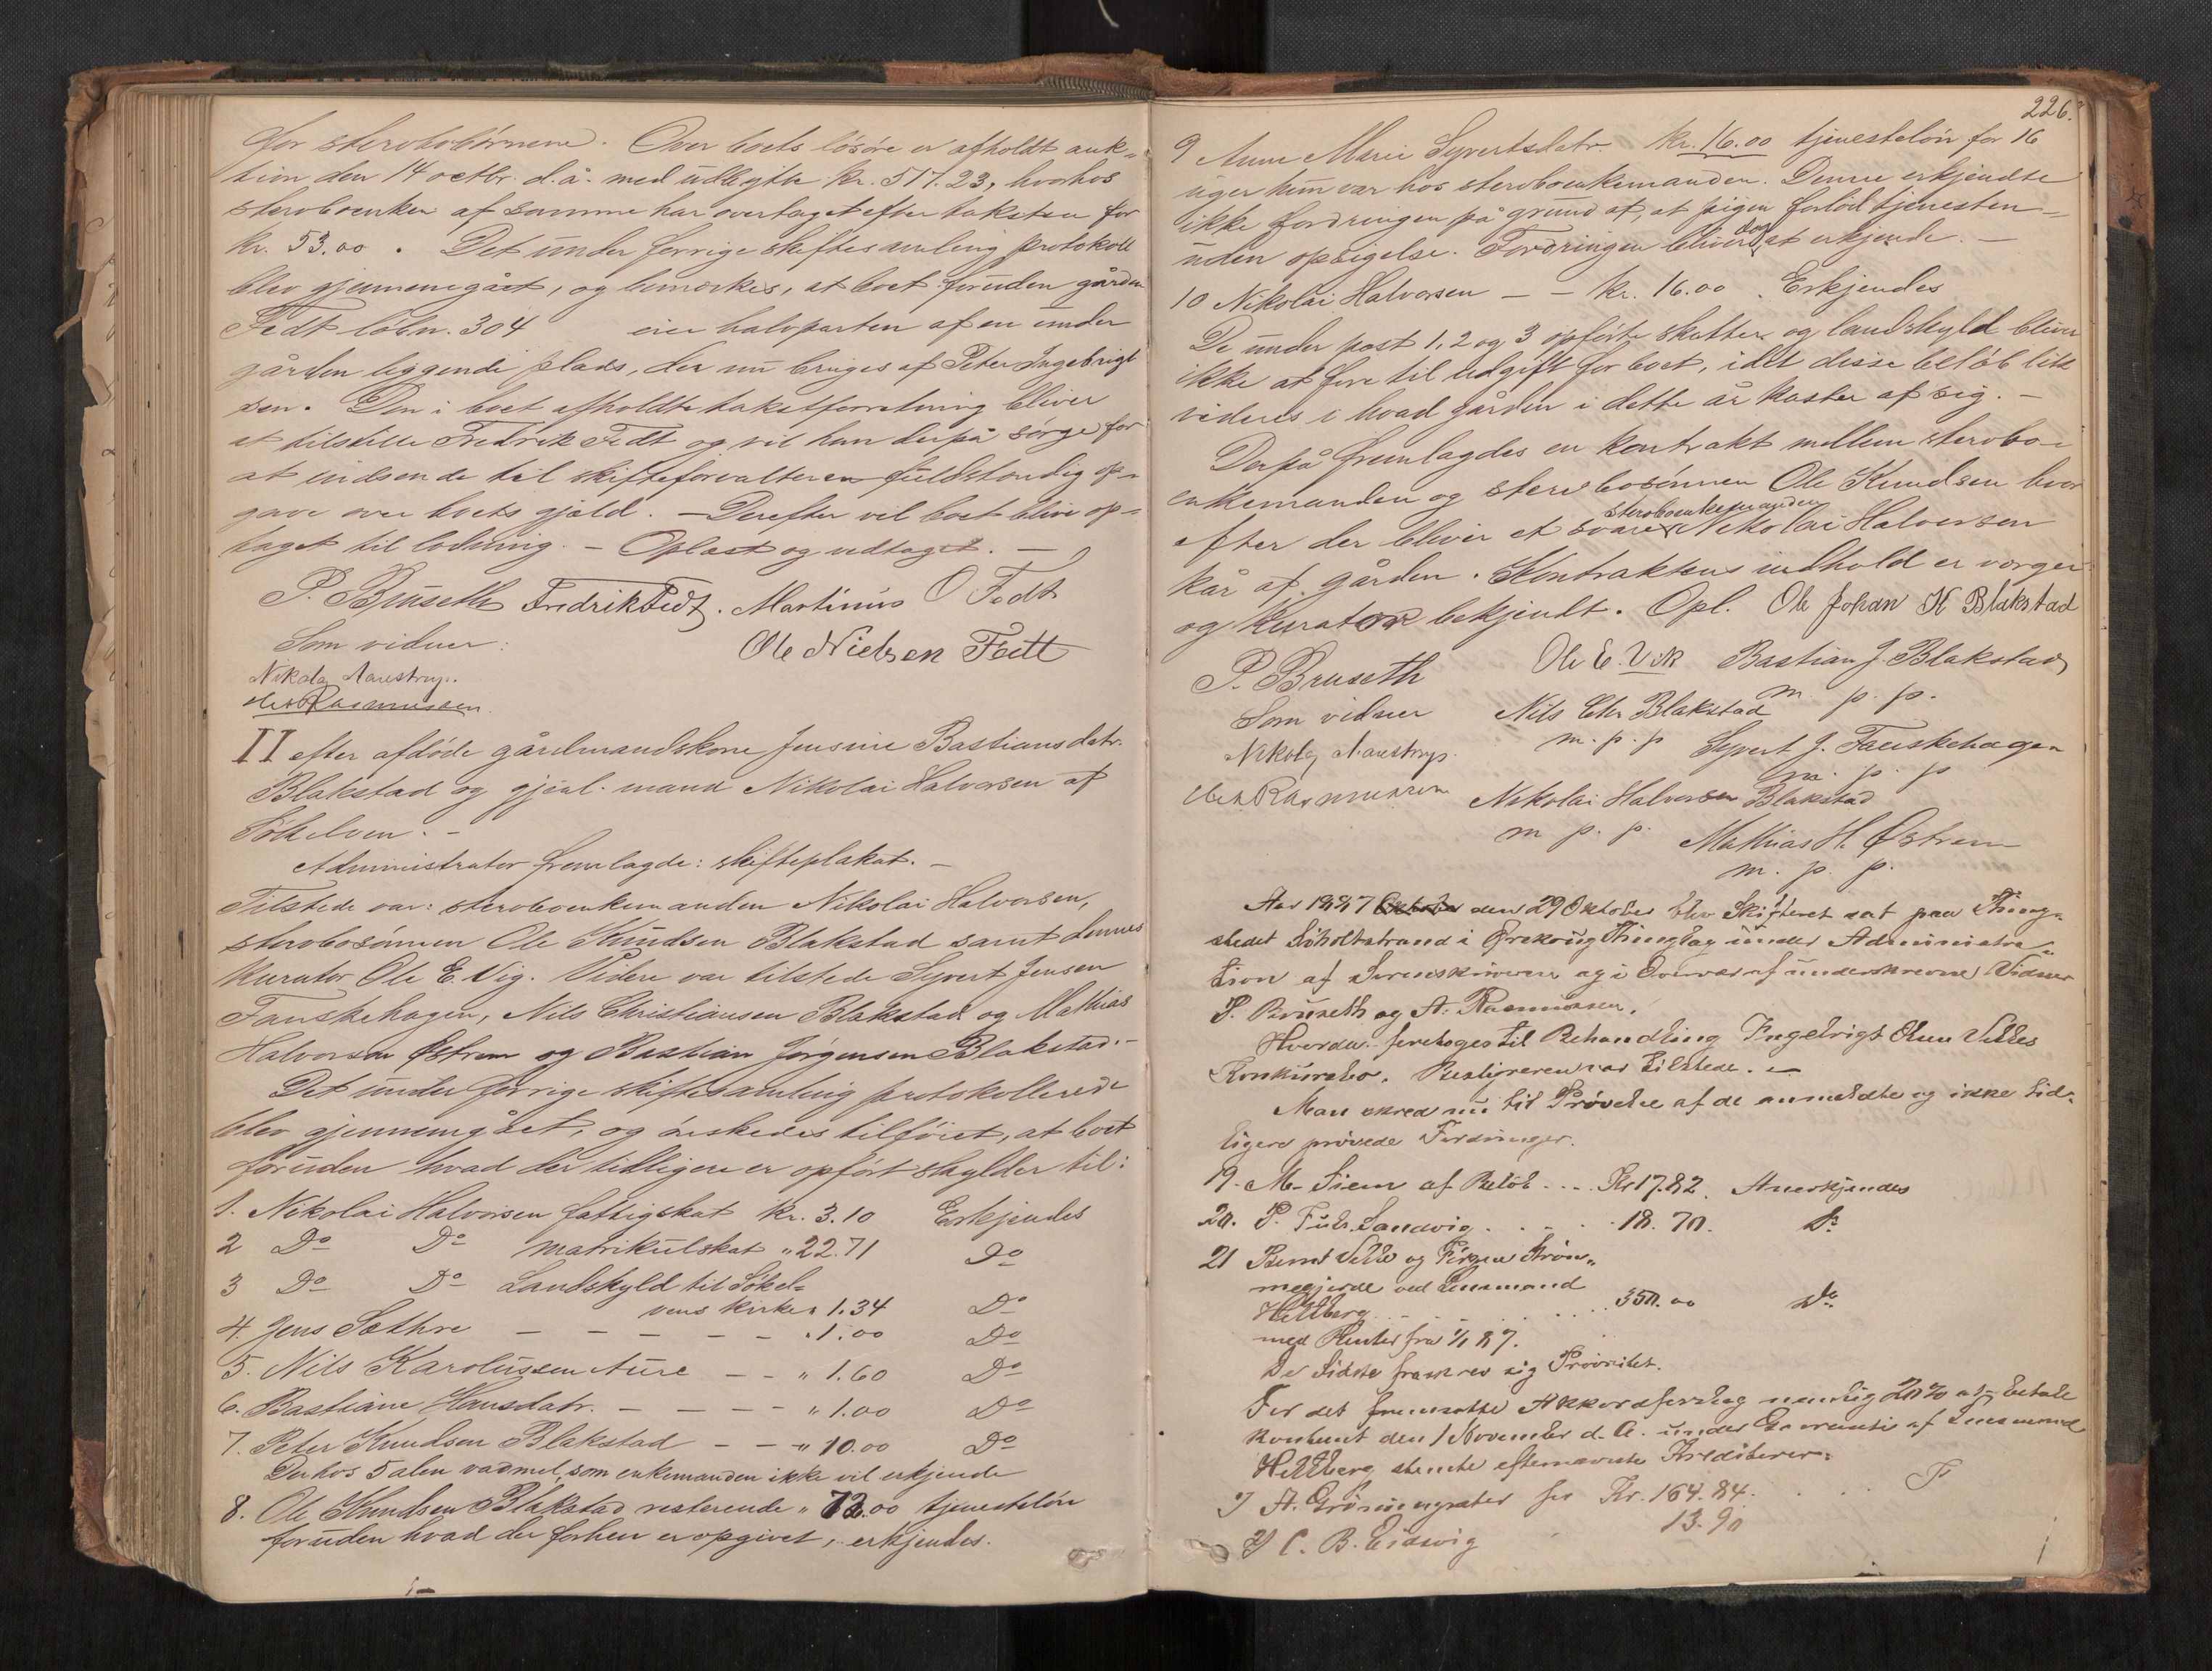 for sterbobørnene. Over boets løsøre er afholdt auk-
tion den 14 octbr. d.å. med udbytte kr. 517.23, hvorhos
sterboenken af samme har overtaget efter taksten for
kr. 53.00. Det under forrige skiftesamling protokoll
blev gjennemgået, og bemærkes, at boet foruden gården
Fedt løbn. 304 eier halvparten af en under
gården liggende plads, der nu bruges af Peter Ingebrigt
sen. Den i boet afholdte takstforretning bliver
at tilstille Fredrik Fedt og vil han derpå sørge for
at indsende til skifteforvalteren fuldstændig op-
gave over boets gjæld. - Derefter vil boet blive op-
taget til lodning. - Oplæst og vedtaget. -
P. Bruseth Fredrik Fedt. Martinus O Fedt
Som vidner: Ole Nielsen Fedt
Nikolaj Naustrup.
A. Rasmussen.
II efter afdøde gårdmandskone Jensine Bastiansdatr.
Blakstad og gjenl. mand Nikolai Halvorsen af
Søkelven. -
Administrator fremlagde: skifteplakat. -
Tilstede var: sterboenkemanden Nikolai Halvorsen,
sterbosønnen Ole Knudsen Blakstad samt dennes
kurator Ole E. Vig. Videre var tilstede Syvert Jensen
Fauskehagen, Nils Christiansen Blakstad og Mathias
Halvorsen Østrem og Bastian Jørgensen Blakstad. -
Det under forrige skiftesamling protokollerede
blev gjennemgået, og ønskedes tilføiet, at boet
foruden hvad der tidligere er opført skylder til:
1. Nikolai Halvorsen fattigskat kr. 3.10 Erkjendes
2 Do Do matrikulskat " 22.71 Do
3 Do Do Landskyld til Søkel-
vens kirke " 1.34 Do
4. Jens Sæthre - - - - - " 1.00 Do
5. Nils Karolussen Aure - - " 1.60 Do
6. Bastiane Hansdatr. - - - - " 1.00 Do
7. Peter Knudsen Blakstad - - " 10.00 Do
Derhos 5 alen vadmel, som enkemanden ikke vil erkjende
8. Ole Knudsen Blakstad resterende " 72.00 tjenesteløn
foruden hvad der forhen er opgivet, erkjendes.
226.
9 Anne Marie Syvertsdatr. kr. 16.00 tjenesteløn for 16
uger hun var hos sterboenkemanden. Denne erkjendte
ikke fordringen på grund af, at pigen forlod tjenesten
uden opsigelse. Fordringen bliver dog at erkjende. -
10 Nikolai Halvorsen - - kr. 16.00. Erkjendes
De under post 1, 2 og 3 opførte skatter og landskyld bliver
ikke at føre til udgift for boet, idet disse beløb lik
videres i hvad gården i dette år kaster af sig. -
Derpå fremlagdes en kontrakt mellem sterbo-
enkemanden og sterbosønnen Ole Knudsen hvor
efter der bliver at svare sterboenkemanden Nikolai Halvorsen
kår af gården. Kontraktens indhold er værger
og kurator bekjendt. Opl. Ole Johan K Blakstad
P. Bruseth Ole E. Vik Bastian J. Blakstad
m. p. p.
Som vidner Nils Chr Blakstad
m. p. p Syvert J. Fauskehagen
m. p. p
Nikolaj Naustrup.
A. Rasmussen Nikolai Halvorsen Blakstad
m p. p. Mathias H. Østrem
m. p. p.
Aar 1887 den 29 Oktober blev Skifteret sat paa Thing-
stedet Søholtstrand i Ørskoug Thinglag under Administra-
tion af Sorenskriveren og i Overvær af underskrevne Vidner
P. Bruseth og A. Rasmussen.
Hvorda foretoges til Behandling Ingebrigt Olsen Velles
Konkursbo. Bestyreren var tilstede. -
Man skred nu til Prøvelse af de anmeldte og ikke tid-
ligere prøvede Fordringer.
19. M. Siem af Beløb ... Kr 17.82. Anerkjendes
20. P. Fuhr. Sandvig. . . . 18. 70. Do
21 Bernt Velle og Jørgen Strøm-
megjerde ved Lensmand
Heltberg . . . . . 350.00 Do
med Renter fra 1/1 87.
De sidste fraskrev sig Prioritet.
For det fremsatte Akkordforslag nemlig 20% at betale
kontant den 1 November d. A. under Garanti af Lensmand
Heltberg stemte efternævnte Kreditorer:
1) A. Grønningsæter for Kr. 164.84. . . .
2) C. B. Eidsvig 13.90